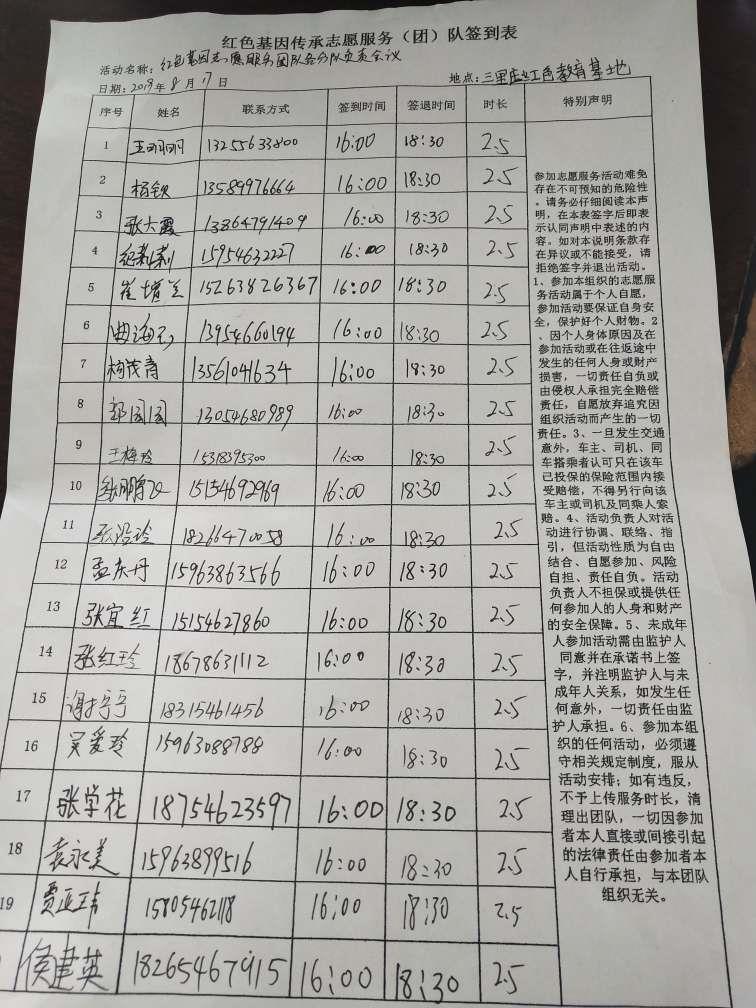 红色基因传承志愿服务（团）队签到表
活动名称：红色基因志愿服务团队各分队负责会议
日期：2019年8月17日 地点：三里庄红色教育基地
序号 姓名 联系方式 签到时间 签退时间 时长 特别声明
1 王丽丽 13255633800 16:00 18:30 2.5
2 杨钦 13589976664 16:00 18:30 2.5
3 张大霞 13364791409 16:00 18:30 2.5
4 纪莉莉 15954632227 16:00 18:30 2.5
5 崔增兰 15263826367 16:00 18:30 2.5
6 曲海 13954660194 16:00 18:30 2.5
7 杨茂青 13561041634 16:00 18:30 2.5
8 郭园园 13054680989 16:00 18:30 2.5
9 王梅玲 15318395300 16:00 18:30 2.5
10 张鹏飞 15154692969 16:00 18:30 2.5
11 玲 18266470058 16:00 18:30 2.5
12 孟庆丹 15963863566 16:00 18:30 2.5
13 张宜红 15154627860 16:00 18:30 2.5
14 张红玲 18678631112 16:00 18:30 2.5
15 谢宁宁 18315461456 16:00 18:30 2.5
16 吴爱玲 15963088788 16:00 18:30 2.5
17 张学花 18754623597 16:00 18:30 2.5
18 袁永美 15963899516 16:00 18:30 2.5
19 贾亚玮 15805462118 16:00 18:30 2.5
侯建英 18265467915 16:00 18:30 2.5
参加志愿服务活动难免
存在不可预知的危险性
。请务必仔细阅读本声
明，在本表签字后即表
示认同声明中表述的内
容。如对本说明条款存
在异议或不能接受，请
拒绝签字并退出活动。
1、参加本组织的志愿服
务活动属于个人自愿，
参加活动要保证自身安
全，保护好个人财物。2
、因个人身体原因及在
参加活动或在往返途中
发生的任何人身或财产
损害，一切责任自负或
由侵权人承担完全赔偿
责任，自愿放弃追究因
组织活动而产生的一切
责任。3、一旦发生交通
意外，车主、司机、同
车搭乘者认可只在该车
已投保的保险范围内接
受赔偿，不得另行向该
车主或司机及同乘人索
赔。4、活动负责人对活
动进行协调、联络、指
引，但活动性质为自由
结合、自愿参加、风险
自担、责任自负。活动
负责人不担保或提供任
何参加人的人身和财产
的安全保障。5、未成年
人参加活动需由监护人
同意并在承诺书上签
字，并注明监护人与未
成年人关系，如发生任
何意外，一切责任由监
护人承担。6、参加本组
织的任何活动，必须遵
守相关规定制度，服从
活动安排；如有违反，
不予上传服务时长，清
理出团队，一切因参加
者本人直接或间接引起
的法律责任由参加者本
人自行承担，与本团队
组织无关。